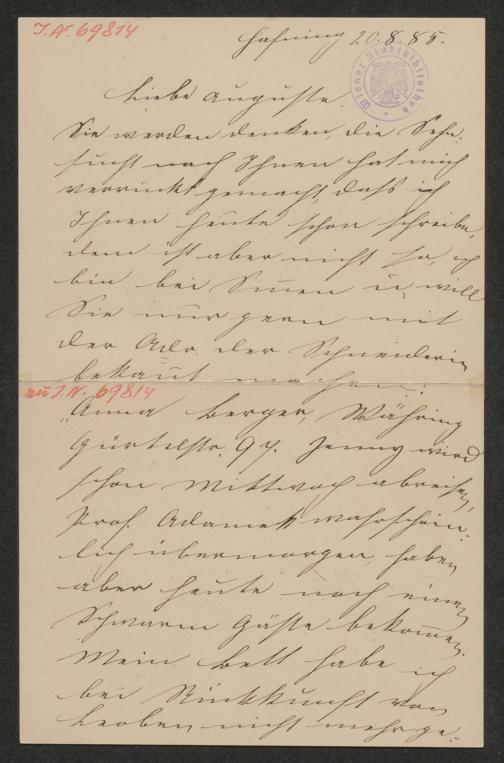 J.N. 69814
Hafning 20.8.85.
Wiener Stadtbibliothek
Liebe Auguste.
Sie werden denken, die Sehn-
sucht nach Ihnen hat mich
verrückt gemacht, daß ich
Ihnen heute schon schreibe,
dem ist aber nicht so, ich
bin bei Sinnen u. will
Sie nur gern mit
der Adr. der Schneiderin
bekannt machen:
zu J.N. 69814
"Anna Berger, Währing
Gürtelstr. 97. Jenny wird
schon Mittwoch abreisen,
Prof. Adamek wahrschein-
lich übermorgen, haben
aber heute noch einen
Schwarm Gäste bekommen.
Mein Bett habe ich
bei Rückkunft von
Leoben nicht mehr ge-